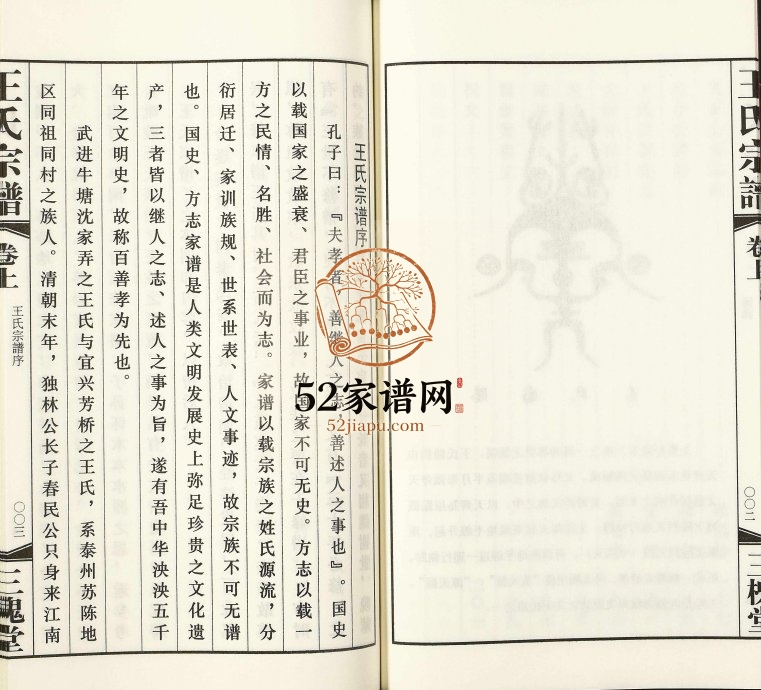 王氏宗谱序
孔子曰：『夫孝者，善继人之志，善述人之事也』。国史
以载国家之盛衰、君臣之事业，故国家不可无史。方志以载一
方之民情、名胜、社会而为志。家谱以载宗族之姓氏源流，分
衍居迁、家训族规、世系世表、人文事迹，故宗族不可无谱
也。国史、方志家谱是人类文明发展史上弥足珍贵之文化遗
产，三者皆以继人之志、述人之事为旨，遂有吾中华泱泱五千
年之文明史，故称百善孝为先也。
武进牛塘沈家弄之王氏与宜兴芳桥之王氏，系泰州苏陈地
区同祖同村之族人。清朝末年，独林公长子春民公只身来江南
王氏宗譜
卷上
王氏宗譜序
〇〇三
三槐堂
王氏宗譜
卷上
〇〇二
三槐堂
52家谱网
52jiapu.com